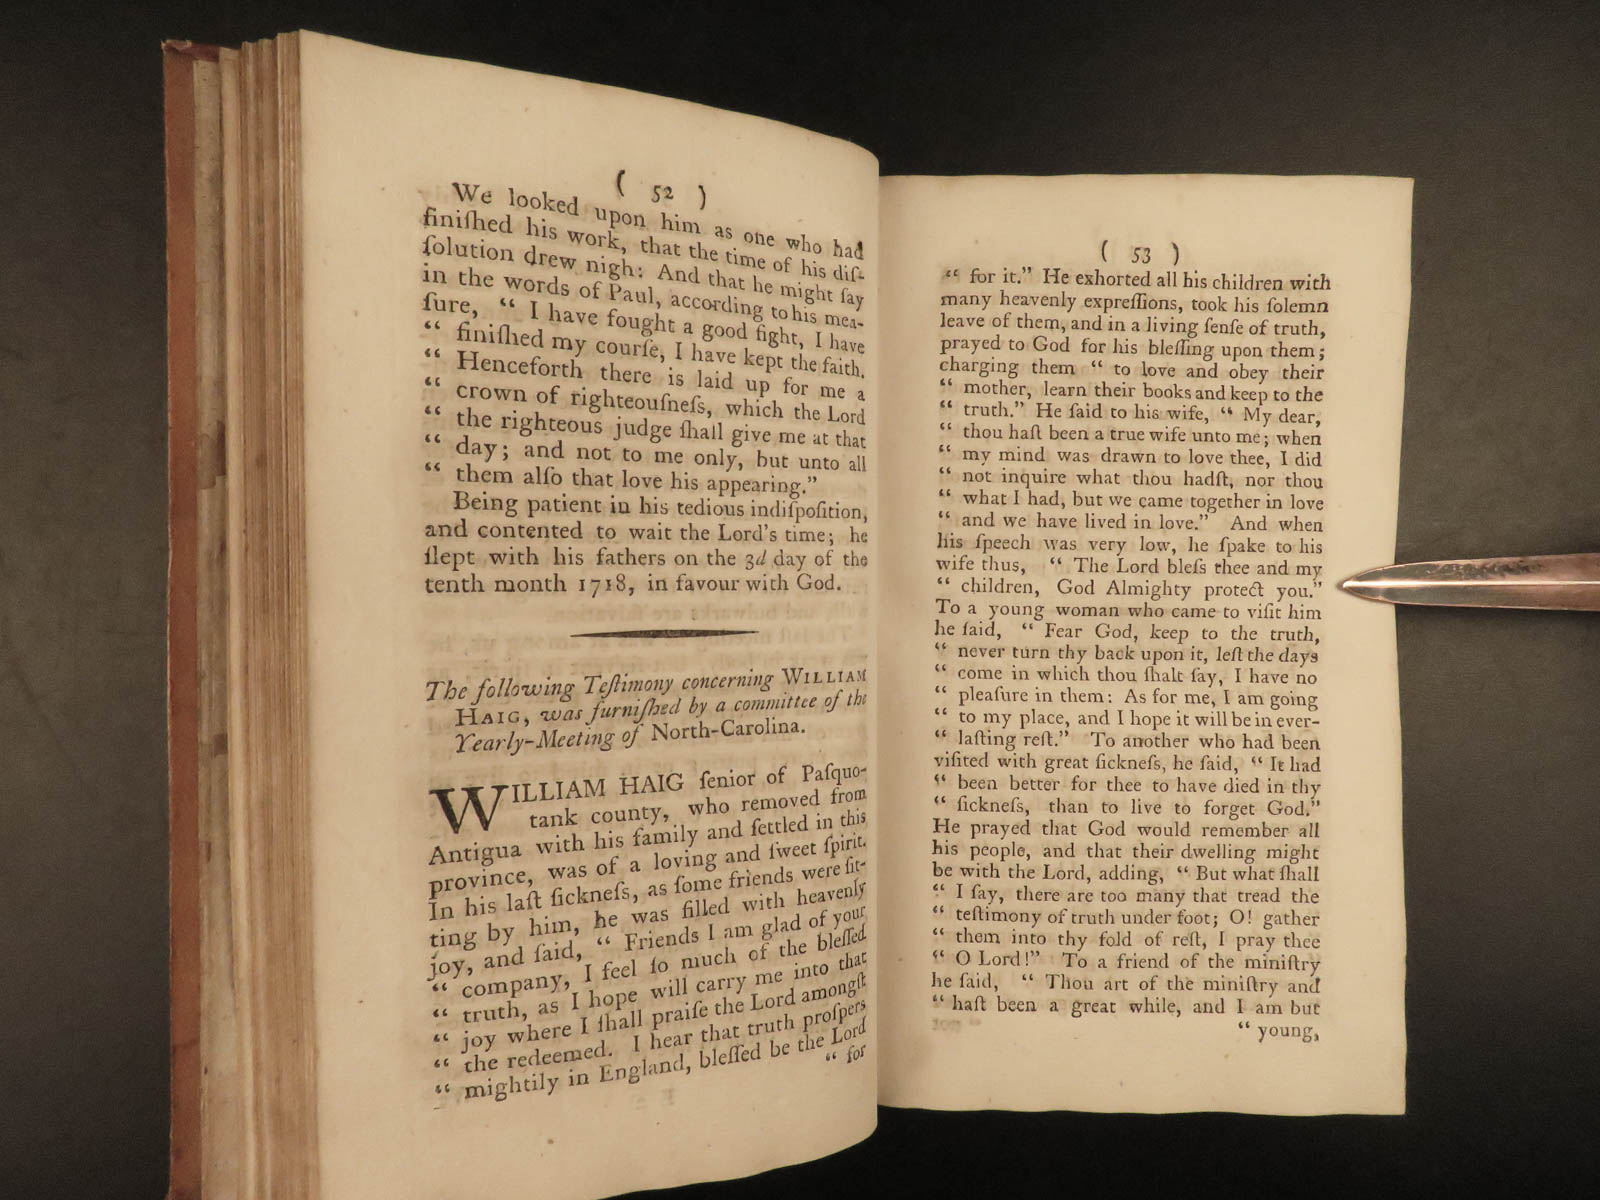 ( 52 )
We looked upon him as one who had
finiſhed his work, that the time of his diſ-
ſolution drew nigh: And that he might ſay
in the words of Paul, according to his mea-
ſure, “ I have fought a good fight, I have
“ finiſhed my courſe, I have kept the faith.
“ Henceforth there is laid up for me a
“ crown of righteouſneſs, which the Lord
“ the righteous judge ſhall give me at that
“ day; and not to me only, but unto all
“ them alſo that love his appearing.”
Being patient in his tedious indiſpoſition,
and contented to wait the Lord's time; he
ſlept with his fathers on the 3d day of the
tenth month 1718, in favour with God.
The following Teſtimony concerning WILLIAM
HAIG, was furniſhed by a committee of the
Yearly-Meeting of North-Carolina.
WILLIAM HAIG ſenior of Paſquo-
tank county, who removed from
Antigua with his family and ſettled in this
province, was of a loving and ſweet ſpirit.
In his laſt ſickneſs, as ſome friends were ſit-
ting by him, he was filled with heavenly
joy, and ſaid, “ Friends I am glad of your
“ company, I feel ſo much of the bleſſed
“ truth, as I hope will carry me into that
“ joy where I ſhall praiſe the Lord amongſt
“ the redeemed. I hear that truth proſpers
“ mightily in England, bleſſed be the Lord
“ for
( 53 )
“ for it.” He exhorted all his children with
many heavenly expreſſions, took his ſolemn
leave of them, and in a living ſenſe of truth,
prayed to God for his bleſſing upon them;
charging them “ to love and obey their
“ mother, learn their books and keep to the
“ truth.” He ſaid to his wife, “ My dear,
“ thou haſt been a true wife unto me; when
“ my mind was drawn to love thee, I did
“ not inquire what thou hadſt, nor thou
“ what I had, but we came together in love
“ and we have lived in love.” And when
his ſpeech was very low, he ſpake to his
wife thus, “ The Lord bleſs thee and my
“ children, God Almighty protect you.”
To a young woman who came to viſit him
he ſaid, “ Fear God, keep to the truth,
“ never turn thy back upon it, leſt the days
“ come in which thou ſhalt ſay, I have no
“ pleaſure in them: As for me, I am going
“ to my place, and I hope it will be in ever-
“ laſting reſt.” To another who had been
viſited with great ſickneſs, he ſaid, “ It had
“ been better for thee to have died in thy
“ ſickneſs, than to live to forget God.”
He prayed that God would remember all
his people, and that their dwelling might
be with the Lord, adding, “ But what ſhall
“ I ſay, there are too many that tread the
“ teſtimony of truth under foot; O! gather
“ them into thy fold of reſt, I pray thee
“ O Lord!” To a friend of the miniſtry
he ſaid, “ Thou art of the miniſtry and
“ haſt been a great while, and I am but
“ young,